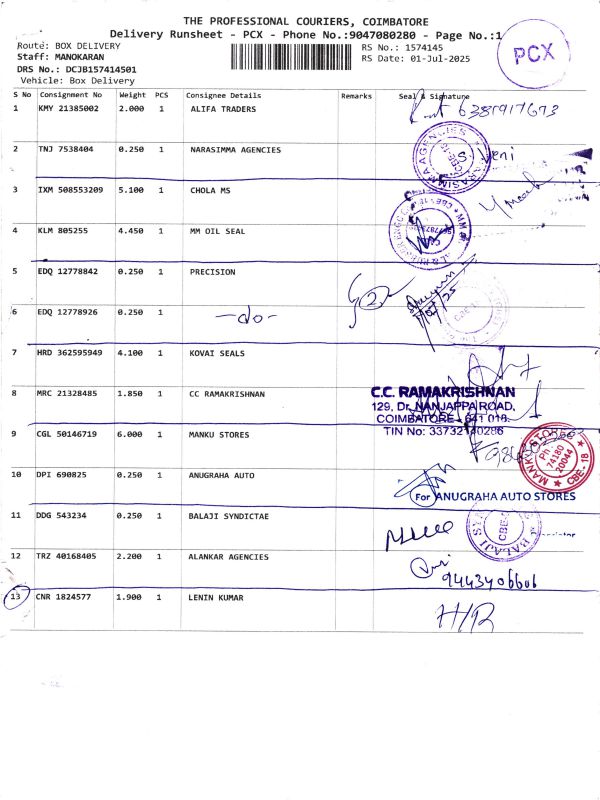 THE PROFESSIONAL COURIERS, COIMBATORE
Delivery Runsheet - PCX - Phone No.:9047080280 - Page No.:1
PCX
Route: BOX DELIVERY
RS No.: 1574145
Staff: MANOKARAN
RS Date: 01-Jul-2025
DRS No.: DCJB157414501
Vehicle: Box Delivery
S No Consignment No Weight PCS Consignee Details Remarks Seal & Signature
1 KMY 21385002 2.000 1 ALIFA TRADERS
2 TNJ 7538404 0.250 1 NARASIMMA AGENCIES
3 IXM 508553209 5.100 1 CHOLA MS
4 KLM 805255 4.450 1 MM OIL SEAL
5 EDQ 12778842 0.250 1 PRECISION
6 EDQ 12778926 0.250 1 -do-
7 HRD 362595949 4.100 1 KOVAI SEALS
8 MRC 21328485 1.850 1 CC RAMAKRISHNAN
C.C. RAMAKRISHNAN
129, Dr. NANJAPPA ROAD,
COIMBATORE - 641 018.
TIN No: 33732140286
9 CGL 50146719 6.000 1 MANKU STORES
MANKU STORES CBE-18
Ph
74180
20044
10 DPI 690825 0.250 1 ANUGRAHA AUTO
For ANUGRAHA AUTO STORES
11 DDG 543234 0.250 1 BALAJI SYNDICTAE
12 TRZ 40168405 2.200 1 ALANKAR AGENCIES
9443406606
13 CNR 1824577 1.900 1 LENIN KUMAR